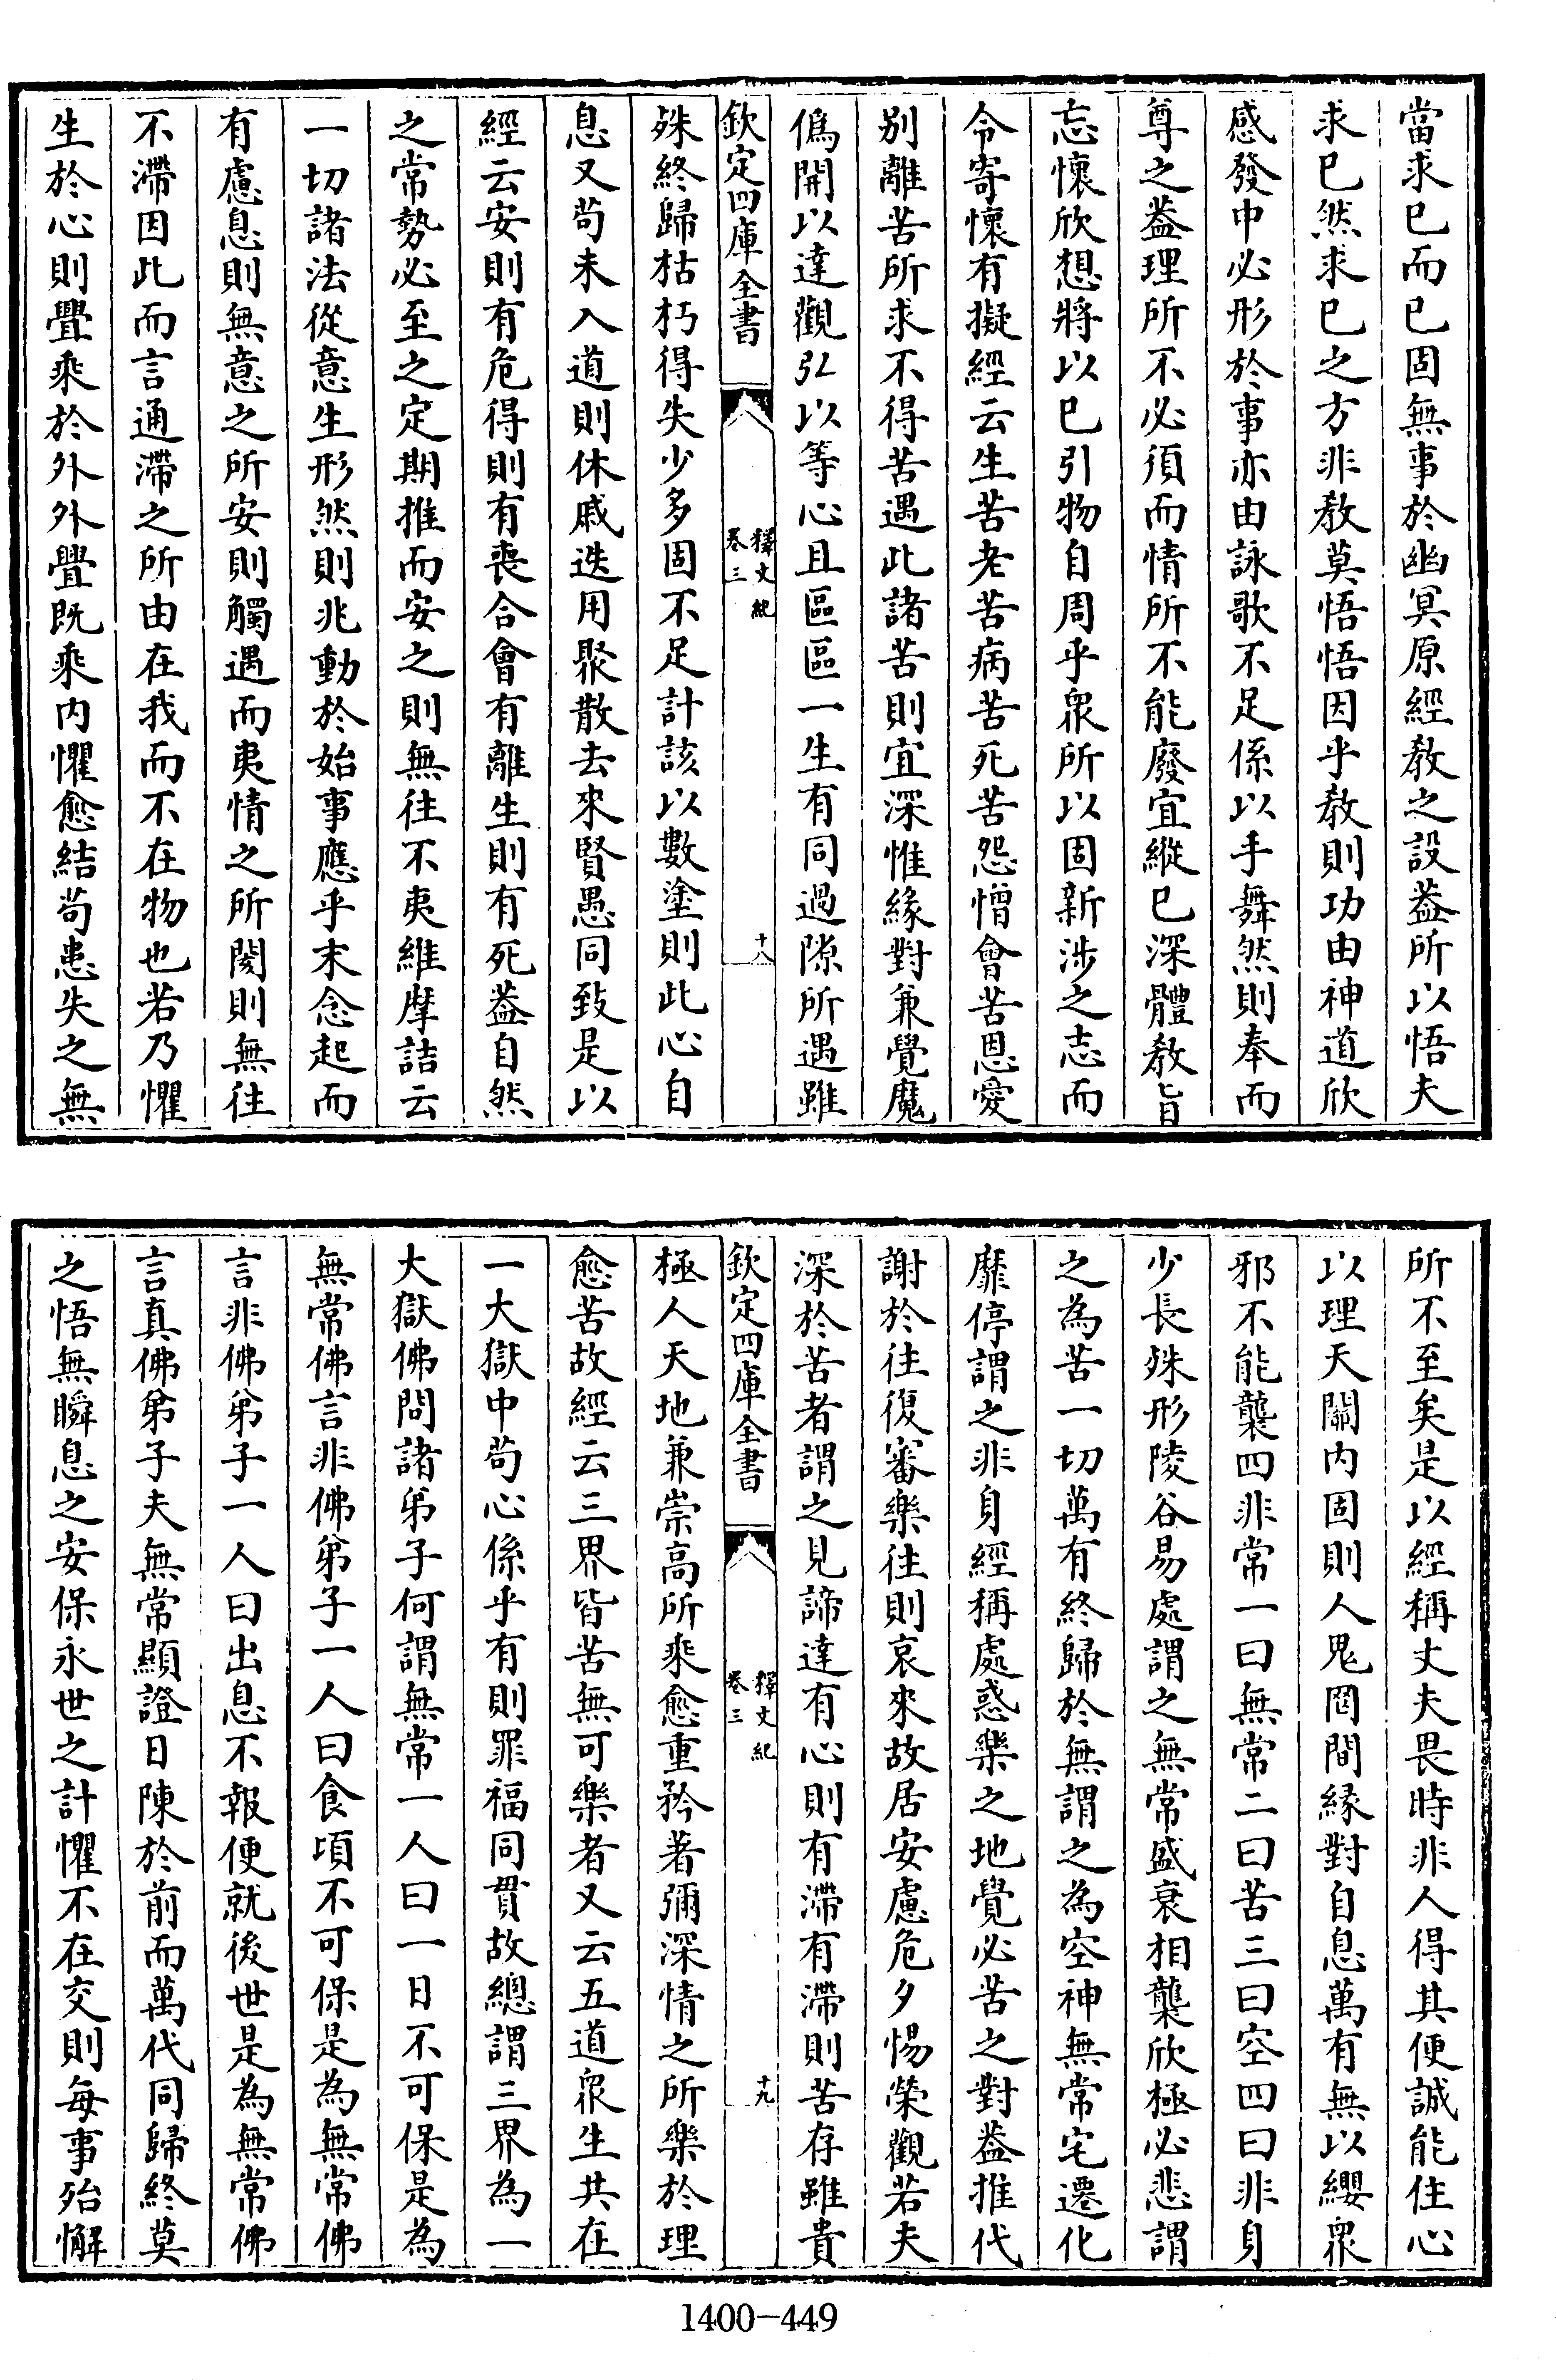 當求已而已固無事於幽冥原經教之設葢所以悟夫
求已然求已之方非教莫悟悟因乎教則功由神道欣
感發中必形於事亦由詠歌不足係以手舞然則奉而
尊之葢理所不必須而情所不能廢宜縱已深體教旨
忘懷欣想將以已引物自周乎衆所以固新涉之志而
令寄懷有擬經云生苦老苦病苦死苦怨憎會苦恩愛
别離苦所求不得苦遇此諸苦則宜深惟緣對兼覺魔
偽開以達觀弘以等心且區區一生有同過隙所遇雖
欽定四庫全書
釋文紀
卷三
十八
殊終歸枯朽得失少多固不足計該以數塗則此心自
息又苟未入道則休戚迭用聚散去來賢愚同致是以
經云安則有危得則有喪合會有離生則有死葢自然
之常勢必至之定期推而安之則無往不夷維摩詰云
一切諸法從意生形然則兆動於始事應乎末念起而
有慮息則無意之所安則觸遇而夷情之所閡則無往
不滯因此而言通滯之所由在我而不在物也若乃懼
生於心則舋乘於外外舋既乘内懼愈結苟患失之無
所不至矣是以經稱丈夫畏時非人得其便誠能住心
以理天關内固則人鬼罔間緣對自息萬有無以纓衆
邪不能襲四非常一曰無常二曰苦三曰空四曰非身
少長殊形陵谷易處謂之無常盛衰相襲欣極必悲謂
之為苦一切萬有終歸於無謂之為空神無常宅遷化
靡停謂之非身經稱處惑樂之地覺必苦之對葢推代
謝於往復審樂往則哀來故居安慮危夕惕榮觀若夫
深於苦者謂之見諦達有心則有滯有滯則苦存雖貴
欽定四庫全書
釋文紀
卷三
十九
極人天地兼崇高所乘愈重矜著彌深情之所樂於理
愈苦故經云三界皆苦無可樂者又云五道衆生共在
一大獄中苟心係乎有則罪福同貫故總謂三界為一
大獄佛問諸弟子何謂無常一人曰一日不可保是為
無常佛言非佛弟子一人曰食頃不可保是為無常佛
言非佛弟子一人曰出息不報便就後世是為無常佛
言真佛弟子夫無常顯證日陳於前而萬代同歸終莫
之悟無瞬息之安保永世之計懼不在交則每事殆懈
1400-449